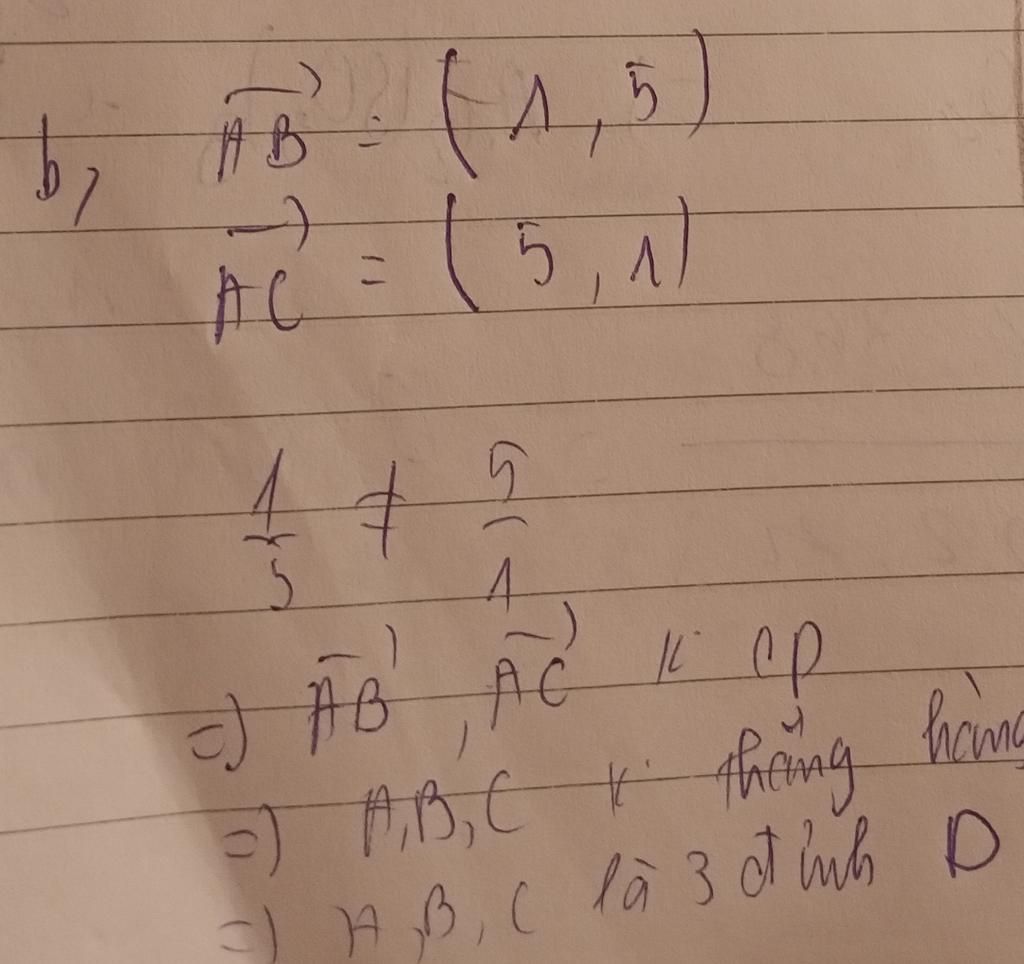 b, AB→ = (1, 5)
AC→ = (5, 1)
1/5 ≠ 5/1
=) AB→, AC→ k cp
=) A, B, C k thẳng hàng
=) A, B, C là 3 đỉnh D